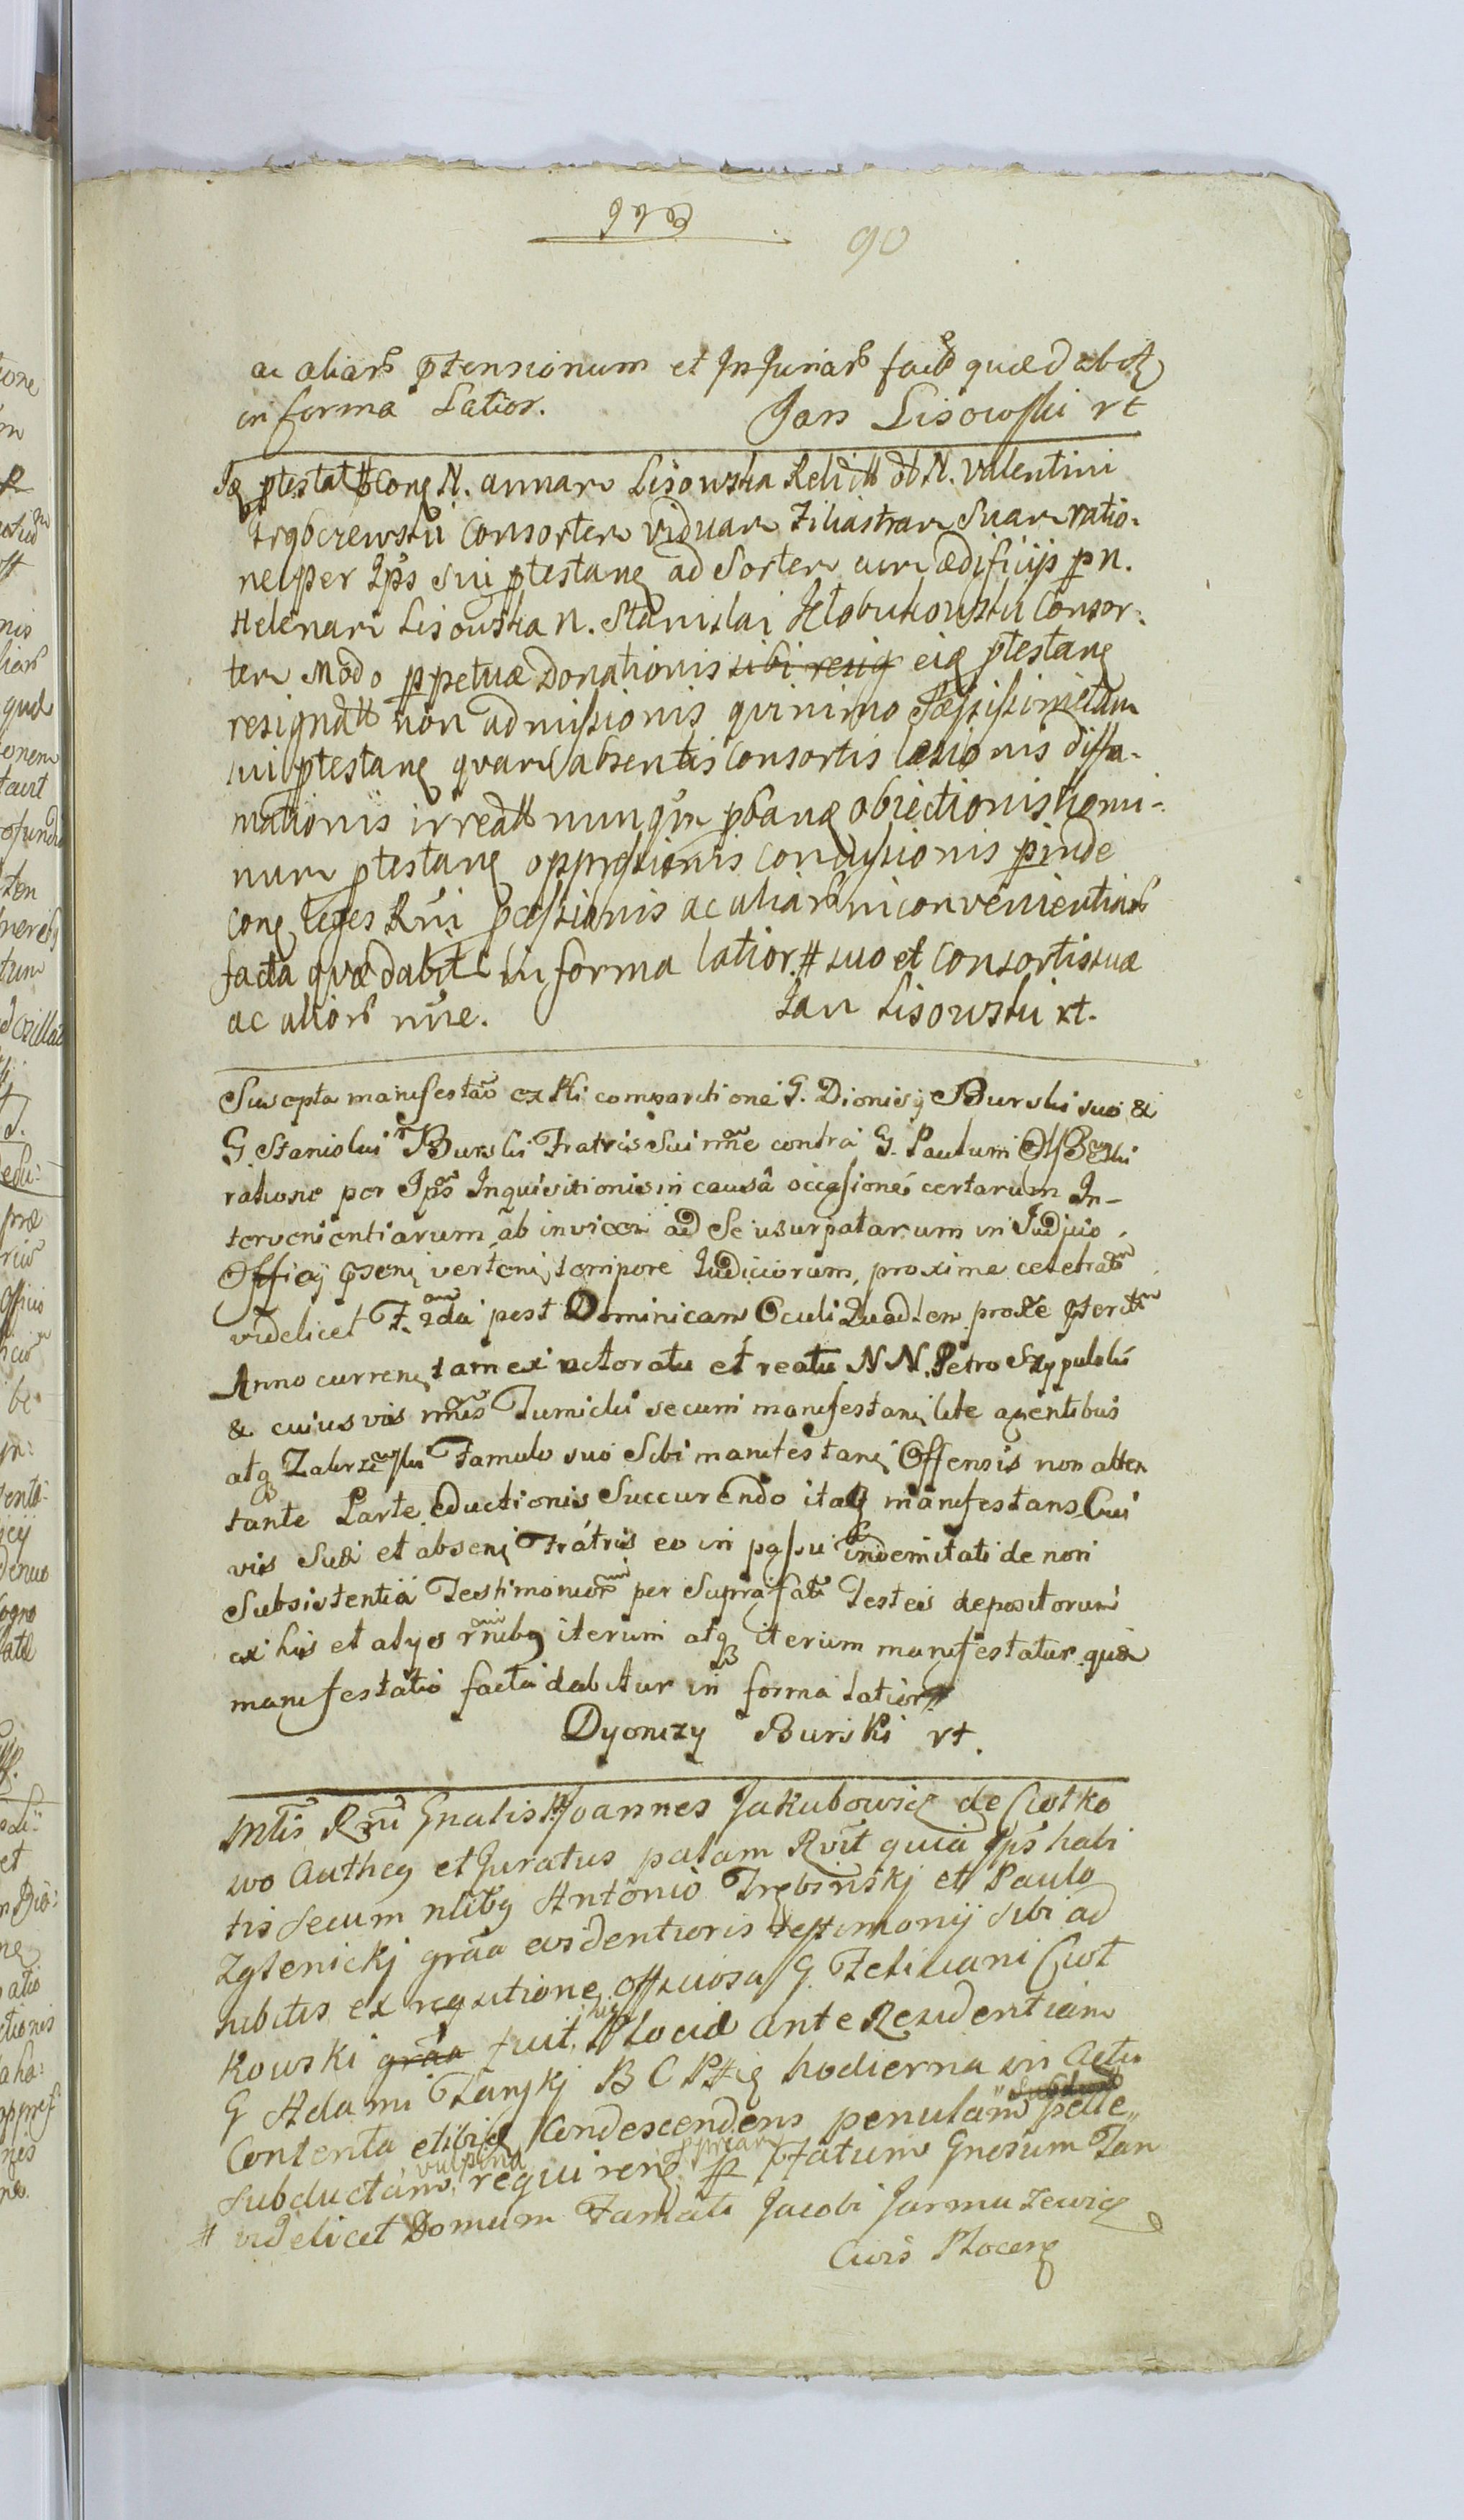 90
ac aliarū ptensionum et Injuriarū quæ dabit
in forma Latior.
Jan Lisowski rt
Iq ptestat cong N. annam Lisowska Relict N. Valentini
consortem viduam Filiastram Suam ratio-
ne per Ips sui ptestang ad Sortem cum ædificijs p n.
Helenam Lisowska N. Stanislai Kłobukowski Consor-
tem Modo ppetuæ Donationis sibi resig eiq ptestang
resignatt non admissionis quinimo Sæpissime tam
sui ptestang quam absentis Consortis læsionis diffa-
mationis irreatt nunqm pbanq obiectionis homi-
num ptestang oppressionis conclusionis pinde
cong leges Rni pcessionis ac aliarū inconvenientiarū
facta quæ dabit in forma latior # suo et Consortis suæ
ac aliorū nne.
Jan Lisowski rt.
Suscepta manifestaō ex pli comparitione G. Dionisij Burski suo &
G. Stanislai Burski Fratris Sui nne contra G. Paulum
ratione per Ips Inquisitionis in causâ occasione certarum In-
tervenientiarum ab invicem ad Se usurpatarum in Judicio
Officij pseng verteng tempore Judiciorum, proxime celebrat
videlicet F. 2da post Dominicam Oculi Quadlem proxe pterit
Anno curreng tam ex actoratu et reatu NN. Petro Szypulski
& cuiusvis nnis Tumicki secum manifestang lite agentibus
atq Zakrzewski Famulo suo Sibi manifestang Offensis non atten
tante Parte eductionis Succurendo itaq manifestans Cui
vis Suæ et abseng Fratris eo in passu indemnitati de non
Subsistentia Testimonior per Suprafat Testes depositorum
ex his et alijs rnibq iterum atq iterum manifestatur quæ
manifestatio facta dabitur in forma latiori
Dyonizy Burski rt.
Mtis Rni Gnalis Joannes Jakubowicz de Ciołko
wo Autheng et Juratus palam Rvit quia Ips habi
tis Secum nlibq Antonio Trębinskj et Paulo
Zglenickj grāa evidentioris testimonij sibi ad
hibitis ex reqsitione officiosa G. Feliciani Cioł
kowski grāa fuit hic Plociæ ante Residentiam
G Adami Flanskj B C P hodierna in Actu
Contenta et ibiq Condescendens penulam pelle
vulpina
Subductam requireng p Ffatum Gnosum Fan
# videlicet Domum Famati Jacobi Jarmuzewicz
Civis Ploceng